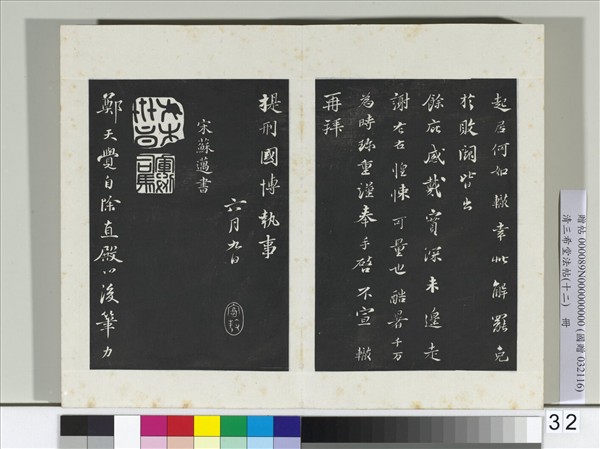 起居何如轍幸此解罷免
於敗闕皆出
餘庇感戴實深未遑走
謝左右惶悚可量也酷暑千万
為時珍重謹奉手啓不宣 轍
再拜
提刑國博執事
六月九日
宋蘇邁書
鄭天覺自除直殿以後筆力
贈帖 000089N000000000 (國贈 032116)
清三希堂法帖(十二) 冊
32